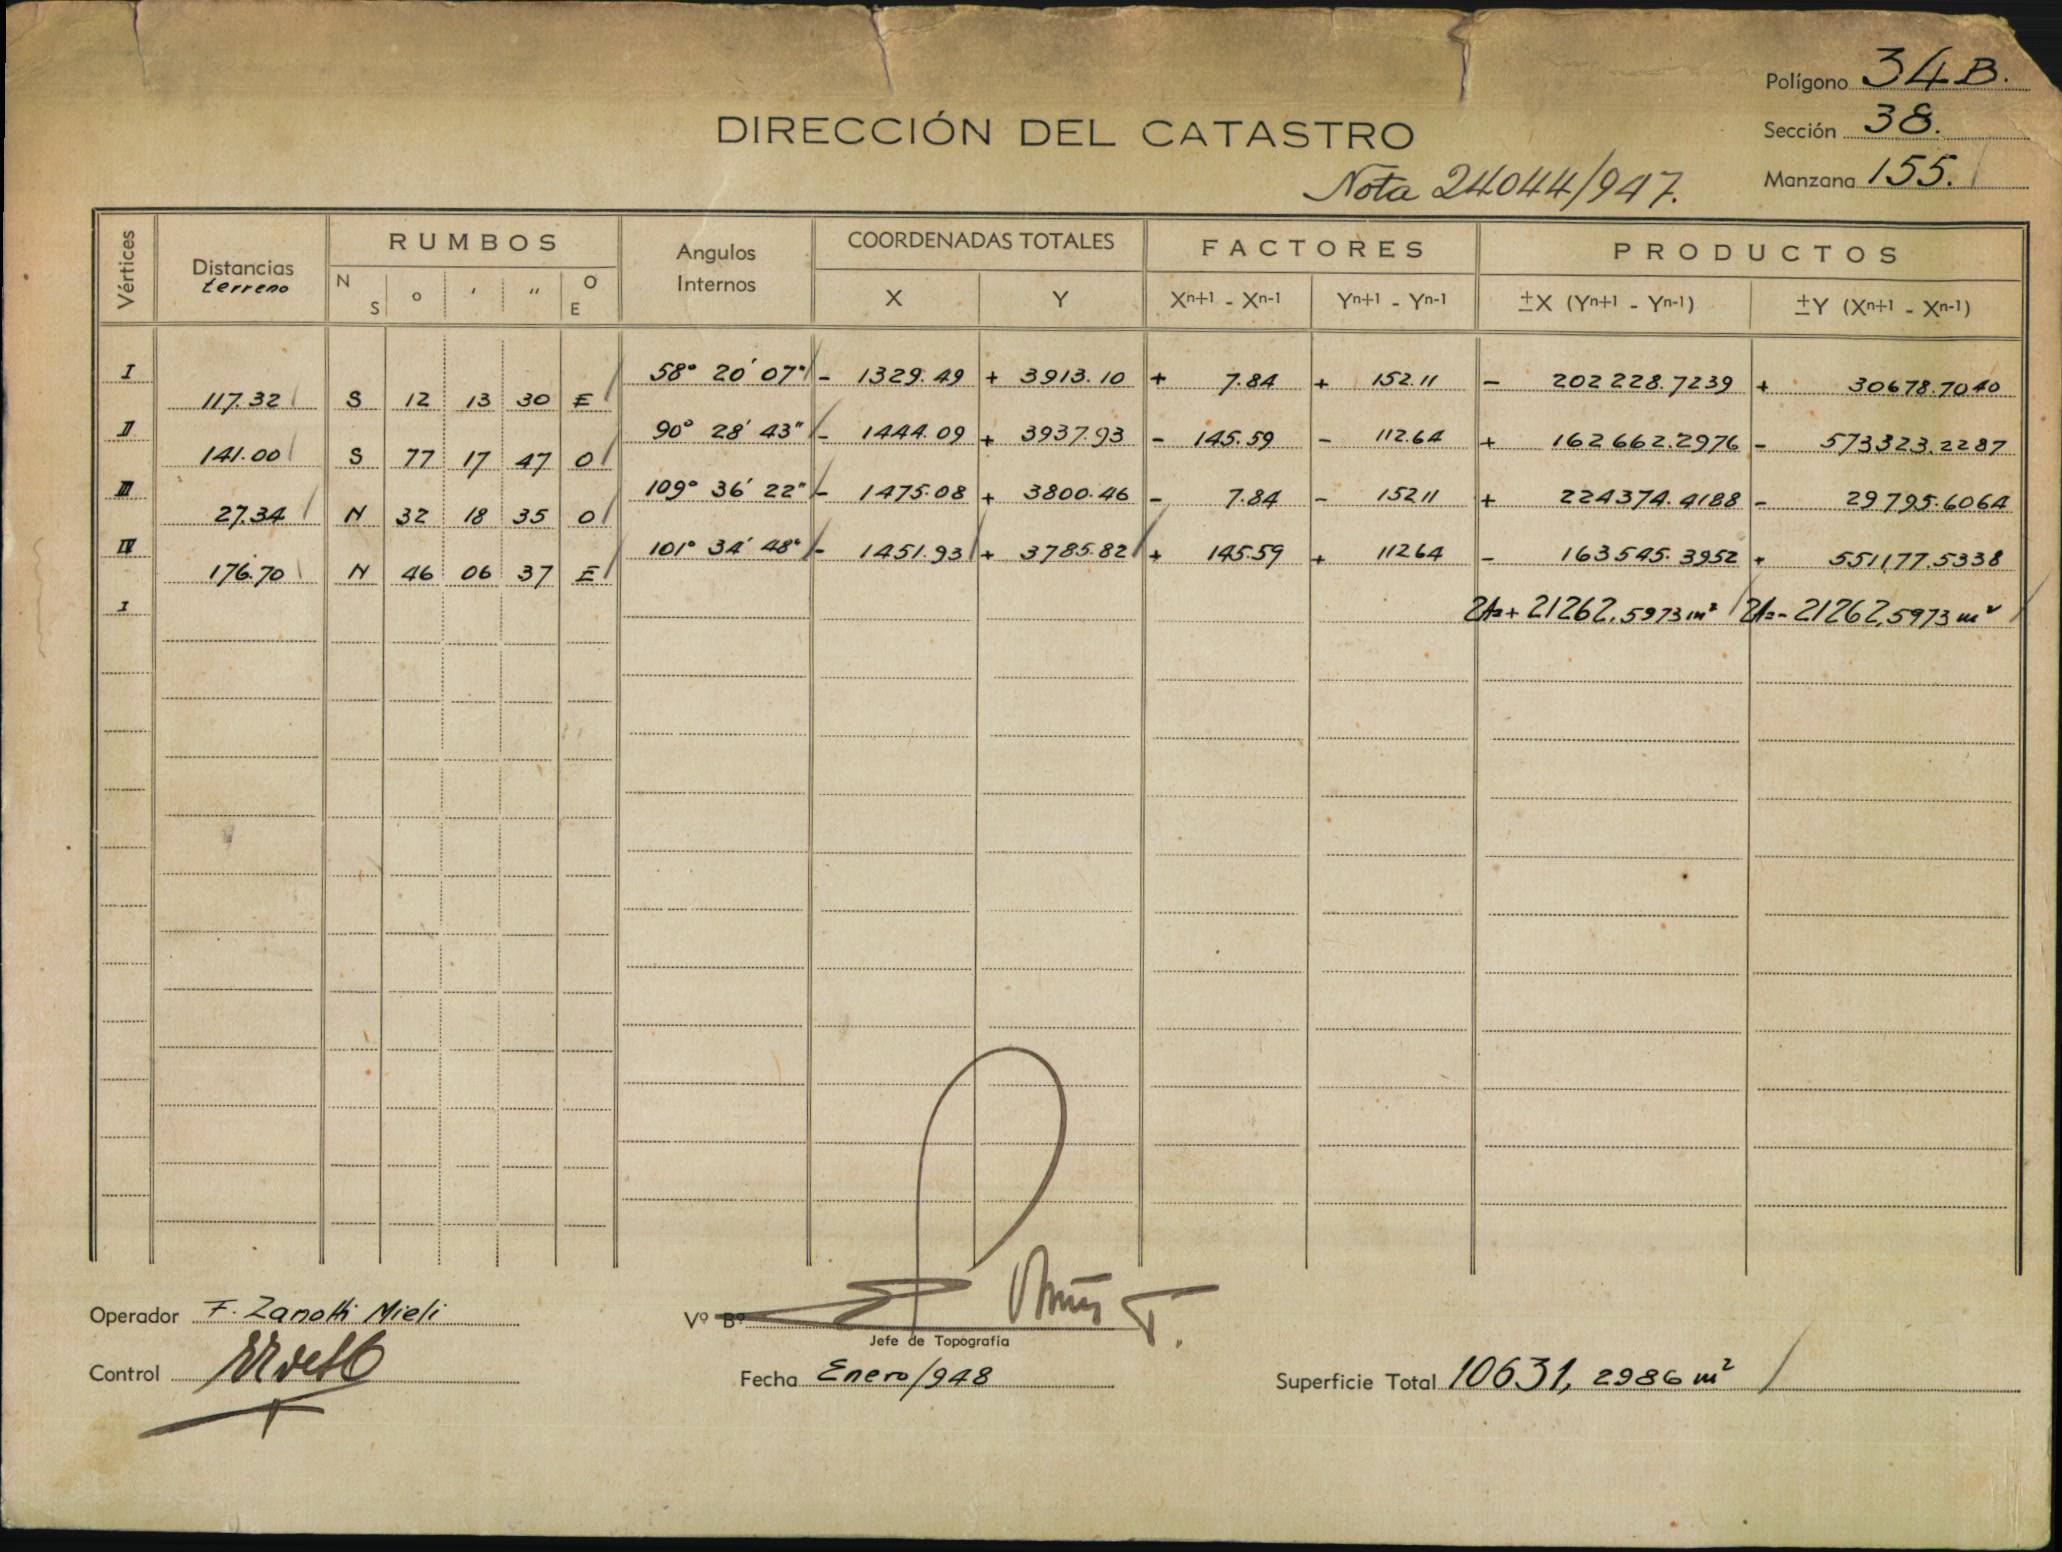 Polígono 34B.
DIRECCIÓN DEL CATASTRO
Sección 38.
Nota 24044/947.
Manzana 155.
Vértices Distancias terreno RUMBOS Angulos Internos COORDENADAS TOTALES FACTORES PRODUCTOS
N S ° ' " O E X Y Xn+1 - Xn-1 Yn+1 - Yn-1 ±X (Yn+1 - Yn-1) ±Y (Xn+1 - Xn-1)
I 58° 20' 07" - 1329.49 + 3913.10 + 7.84 + 152.11 - 202228.7239 + 30678.7040
117.32 S 12 13 30 E
II 90° 28' 43" - 1444.09 + 3937.93 - 145.59 - 112.64 + 162662.2976 - 573323.2287
141.00 S 77 17 47 O
III 109° 36' 22" - 1475.08 + 3800.46 - 7.84 - 152.11 + 224374.4188 - 29795.6064
27.34 N 32 18 35 O
IV 101° 34' 48" - 1451.93 + 3785.82 + 145.59 + 112.64 - 163545.3952 + 551177.5338
176.70 N 46 06 37 E
I 2A=+ 21262,5973 m² 2A=- 21262,5973 m²
Operador F. Zanotti Mieli
Vº Bº
Jefe de Topografía
Control
Fecha Enero/948
Superficie Total 10631,2986 m²